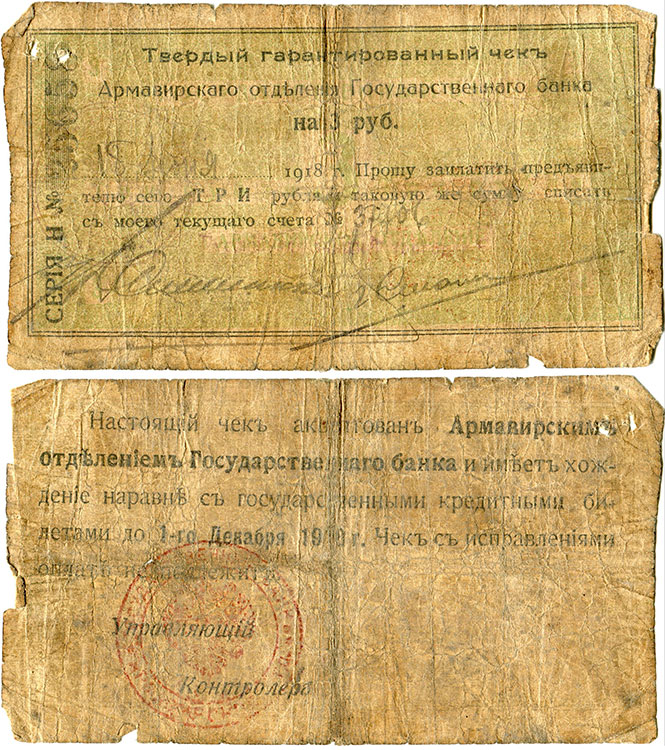 Твердый гарантированный чекъ
Армавирскаго отдѣленія Государственнаго банка
на 3 руб.
1918 г. Прошу заплатить предъяви-
телю сего ТРИ рубля и таковую же сумму списать
съ моего текущаго счета №
СЕРІЯ Н №
Настоящій чекъ акцептованъ Армавирскимъ
отдѣленіемъ Государственнаго банка и имѣетъ хож-
деніе наравнѣ съ государственными кредитными би-
летами до 1-го Декабря г. Чекъ съ исправленіями
оплатѣ не подлежитъ.
Управляющій
Контролеръ